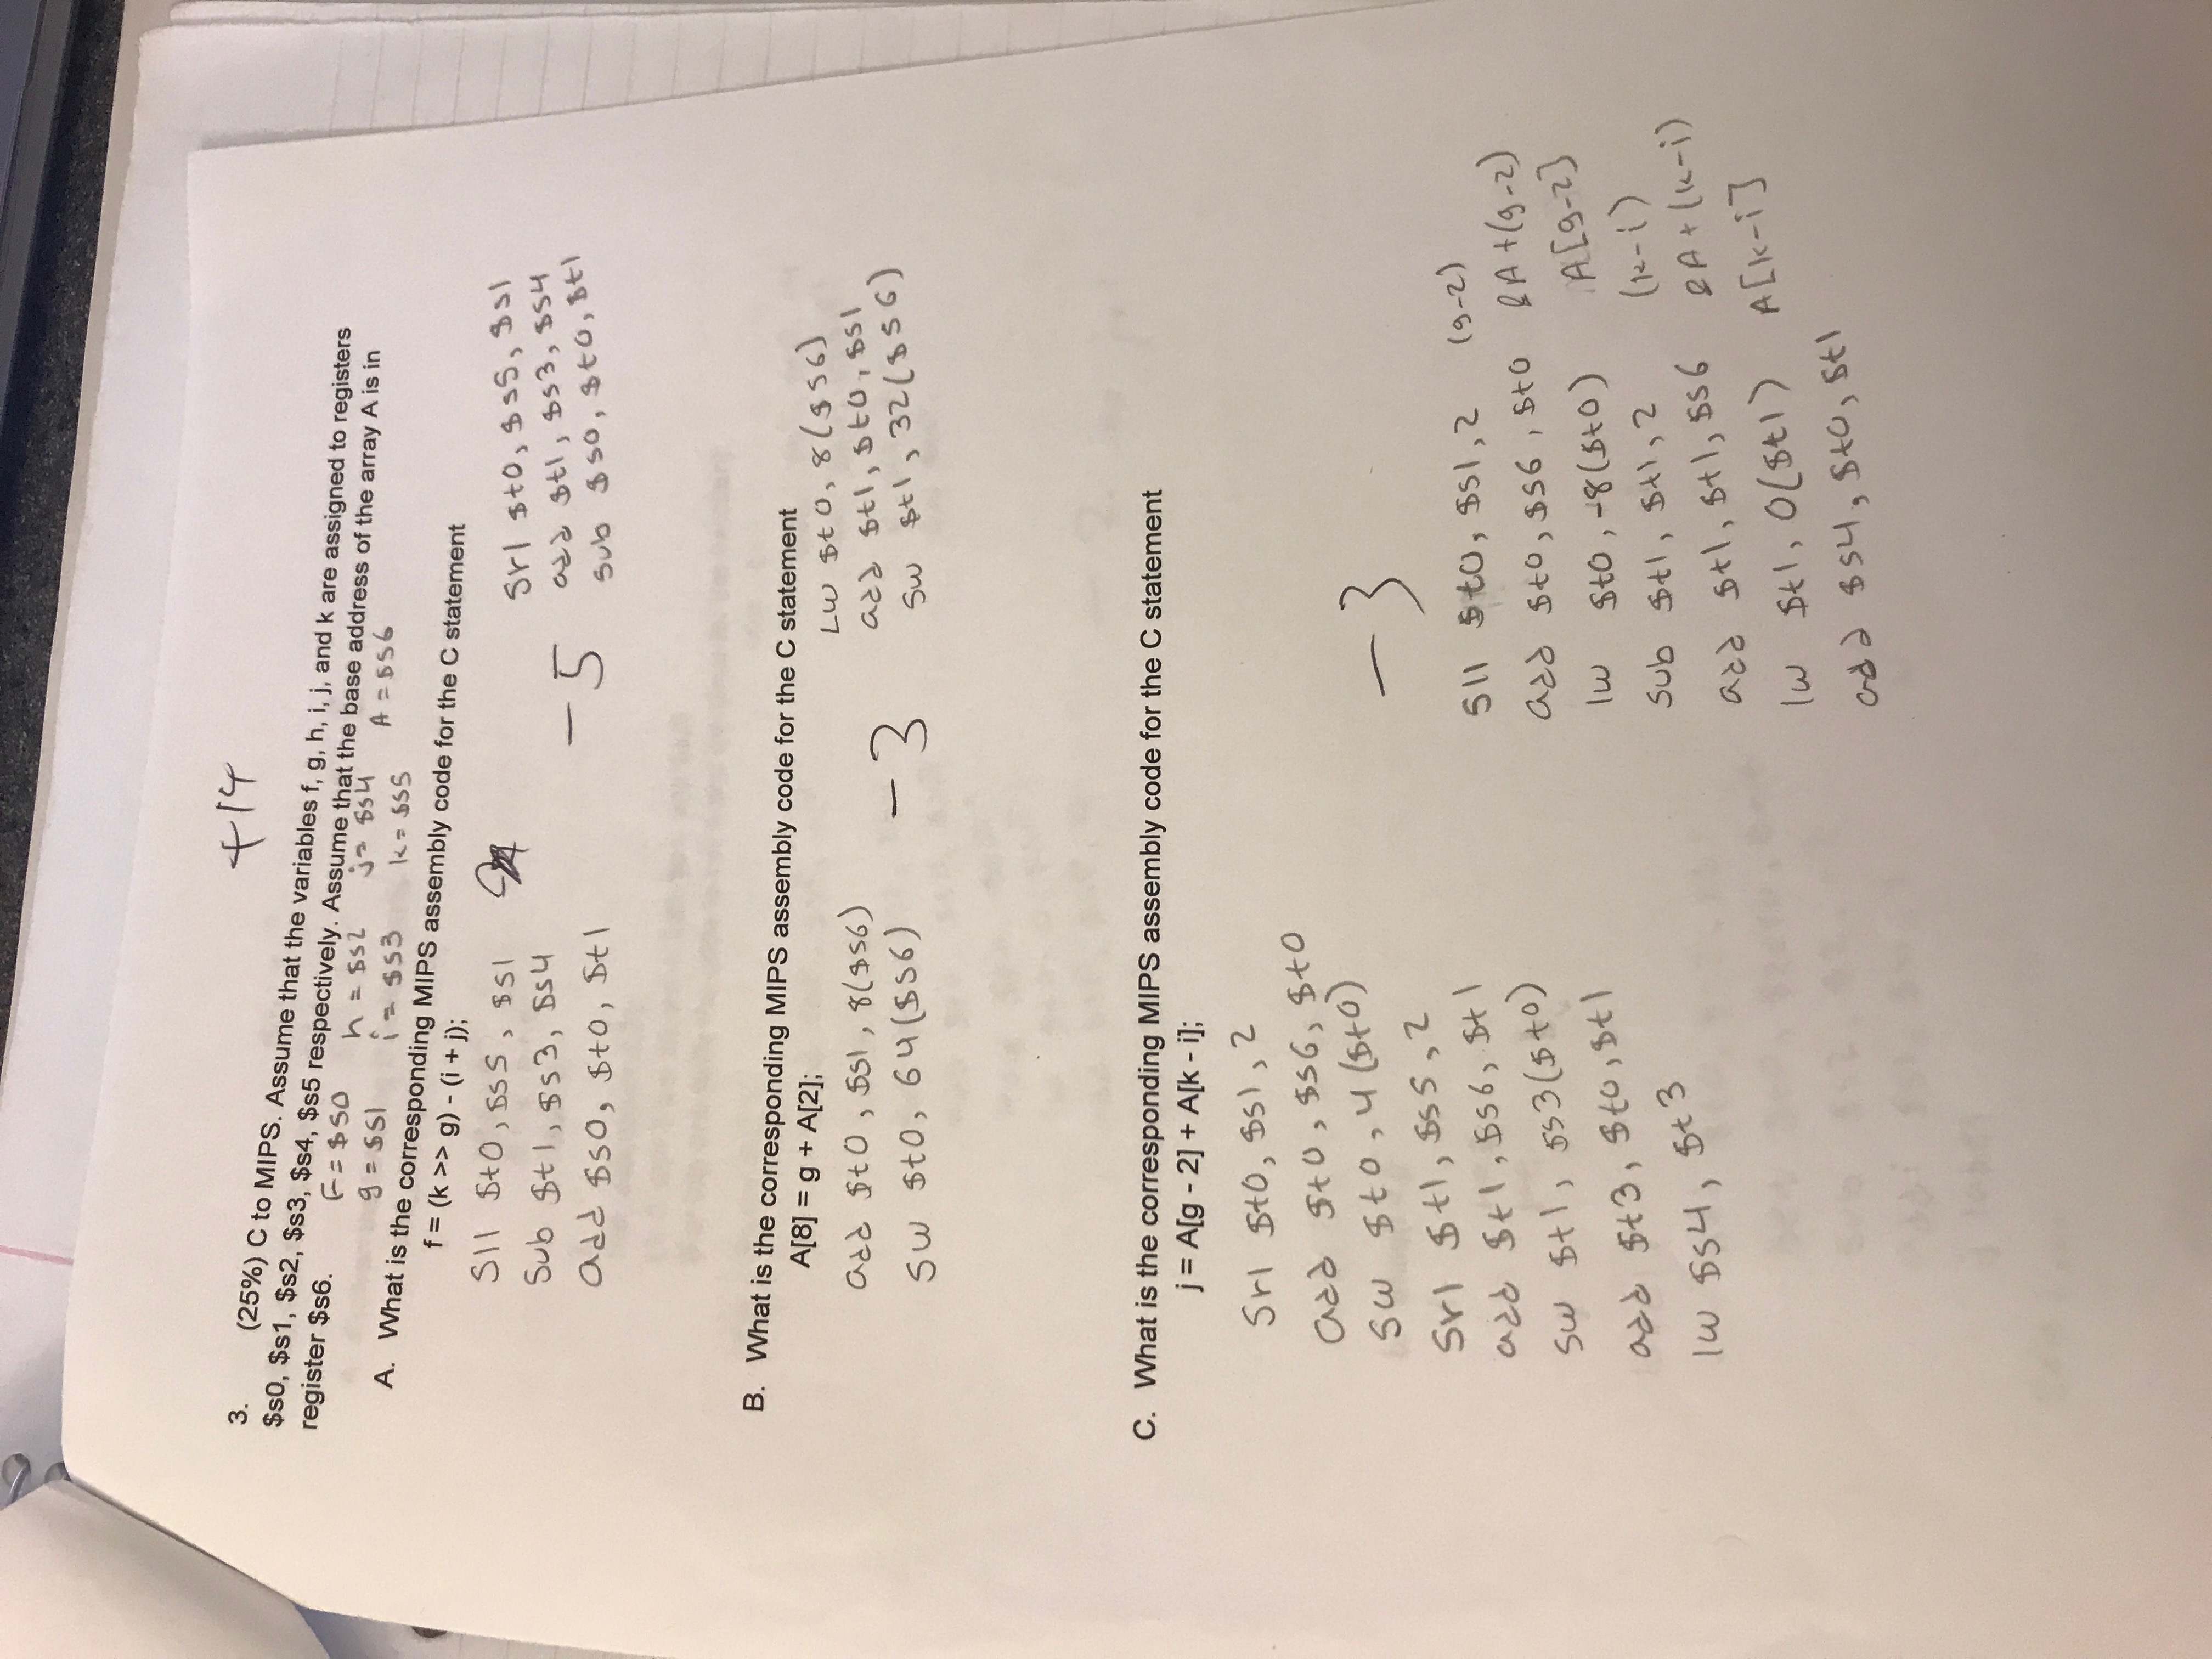 +14
3. (25%) C to MIPS. Assume that the variables f, g, h, i, j, and k are assigned to registers
$s0, $s1, $s2, $s3, $s4, $s5 respectively. Assume that the base address of the array A is in
register $s6.
F = $S0 h = $s2 j= $s4
g = $S1 i = $s3 k = $S5 A = $S6
A. What is the corresponding MIPS assembly code for the C statement
f = (k >> g) - (i + j);
Sll $t0, $S5, $s1
Sub $t1, $s3, $s4
add $s0, $t0, $t1
-5
Srl $t0, $s5, $s1
add $t1, $s3, $s4
sub $s0, $t0, $t1
B. What is the corresponding MIPS assembly code for the C statement
A[8] = g + A[2];
add $t0, $s1, 8($s6)
sw $t0, 64($s6)
-3
Lw $t0, 8($s6)
add $t1, $t0, $s1
Sw $t1, 32($s6)
C. What is the corresponding MIPS assembly code for the C statement
j = A[g - 2] + A[k - i];
Srl $t0, $s1, 2
add $t0, $s6, $t0
Sw $t0, 4($t0)
Srl $t1, $s5, 2
add $t1, $s6, $t1
sw $t1, $s3($t0)
add $t3, $t0, $t1
lw $s4, $t3
-3
Sll $t0, $s1, 2 (g-2)
add $t0, $s6, $t0 &A+(g-2)
lw $t0, -8($t0) A[g-2]
Sub $t1, $t1, 2 (k-i)
add $t1, $t1, $s6 &A+(k-i)
lw $t1, 0($t1) A[k-i]
add $s4, $t0, $t1